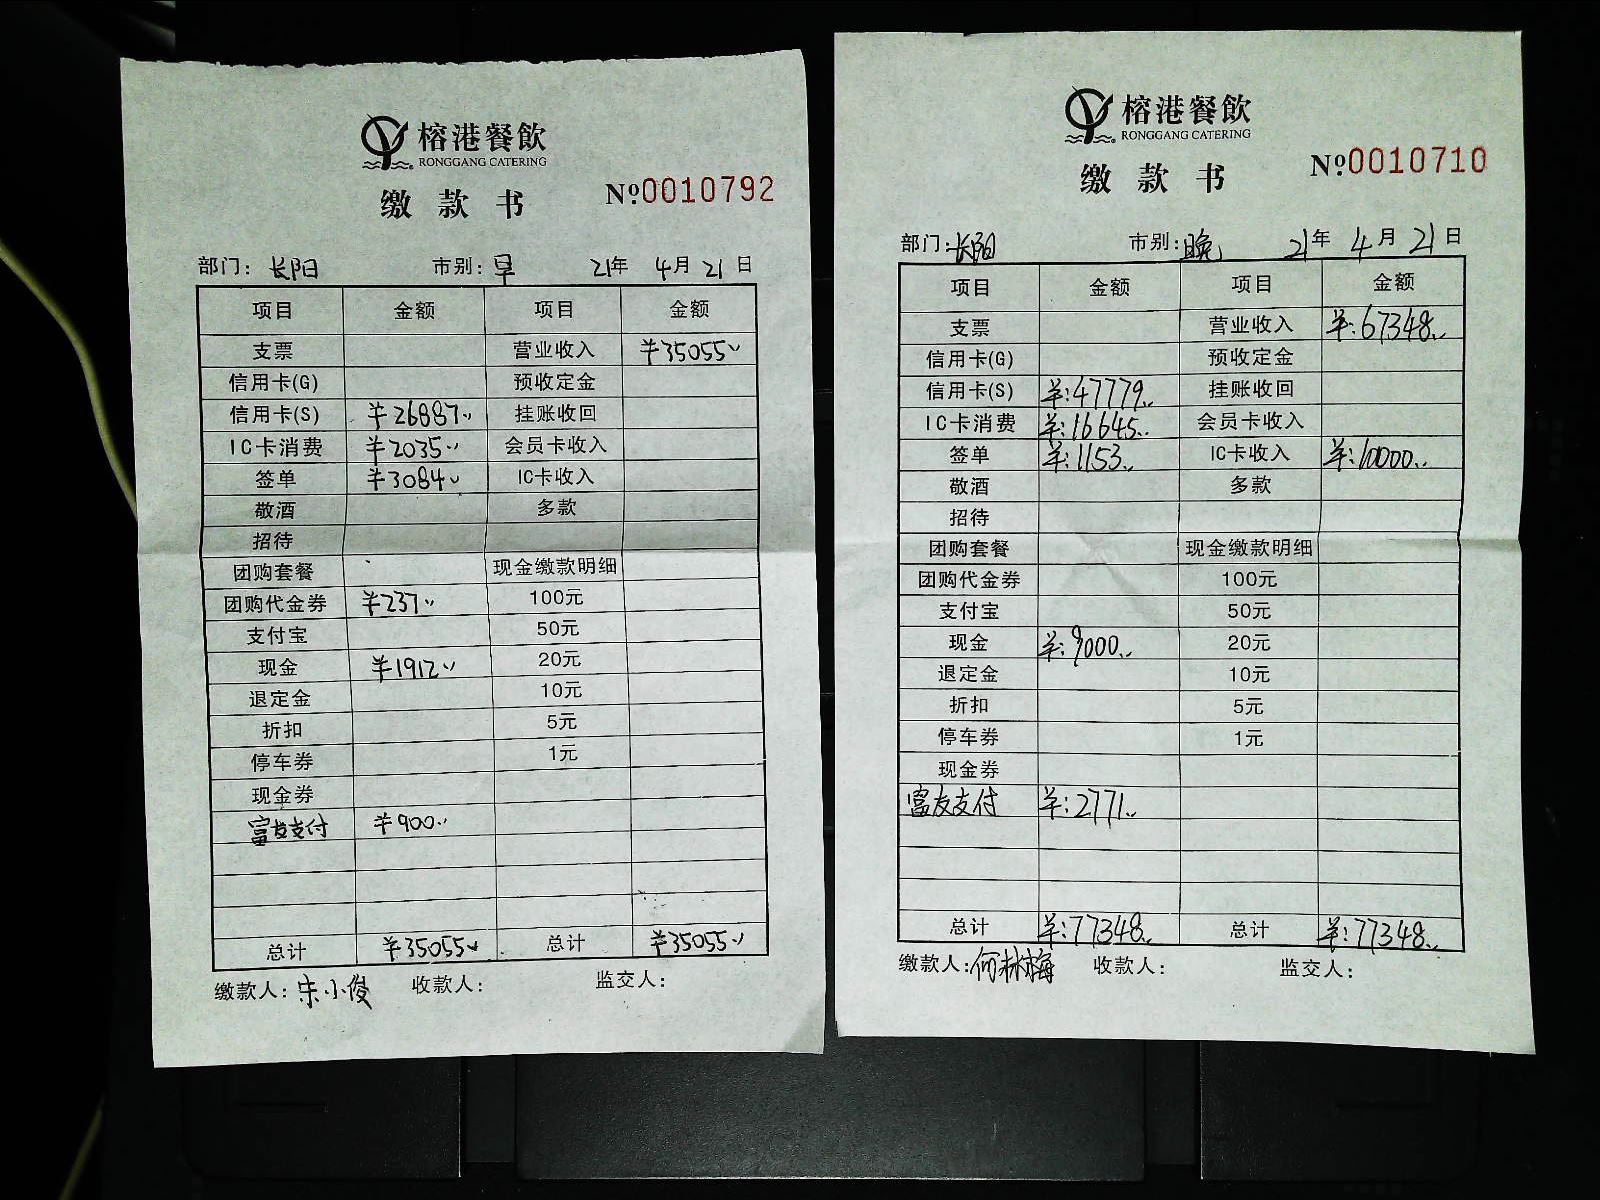 榕港餐飲
RONGGANG CATERING
缴款书 №0010792
部门: 长阳 市别: 早 21年 4月 21日
项目 金额 项目 金额
支票 营业收入 ¥35055
信用卡(G) 预收定金
信用卡(S) ¥26887 挂账收回
IC卡消费 ¥2035 会员卡收入
签单 ¥3084 IC卡收入
敬酒 多款
招待
团购套餐 现金缴款明细
团购代金券 ¥237 100元
支付宝 50元
现金 ¥1912 20元
退定金 10元
折扣 5元
停车券 1元
现金券
富友支付 ¥900
总计 ¥35055 总计 ¥35055
缴款人: 宋小俊 收款人: 监交人:
榕港餐飲
RONGGANG CATERING
缴款书 №0010710
部门: 长阳 市别: 晚 21年 4月 21日
项目 金额 项目 金额
支票 营业收入 ¥:67348
信用卡(G) 预收定金
信用卡(S) ¥:47779 挂账收回
IC卡消费 ¥:16645 会员卡收入
签单 ¥:1153 IC卡收入 ¥:10000
敬酒 多款
招待
团购套餐 现金缴款明细
团购代金券 100元
支付宝 50元
现金 ¥:9000 20元
退定金 10元
折扣 5元
停车券 1元
现金券
富友支付 ¥:2771
总计 ¥:77348 总计 ¥:77348
缴款人: 何林梅 收款人: 监交人: